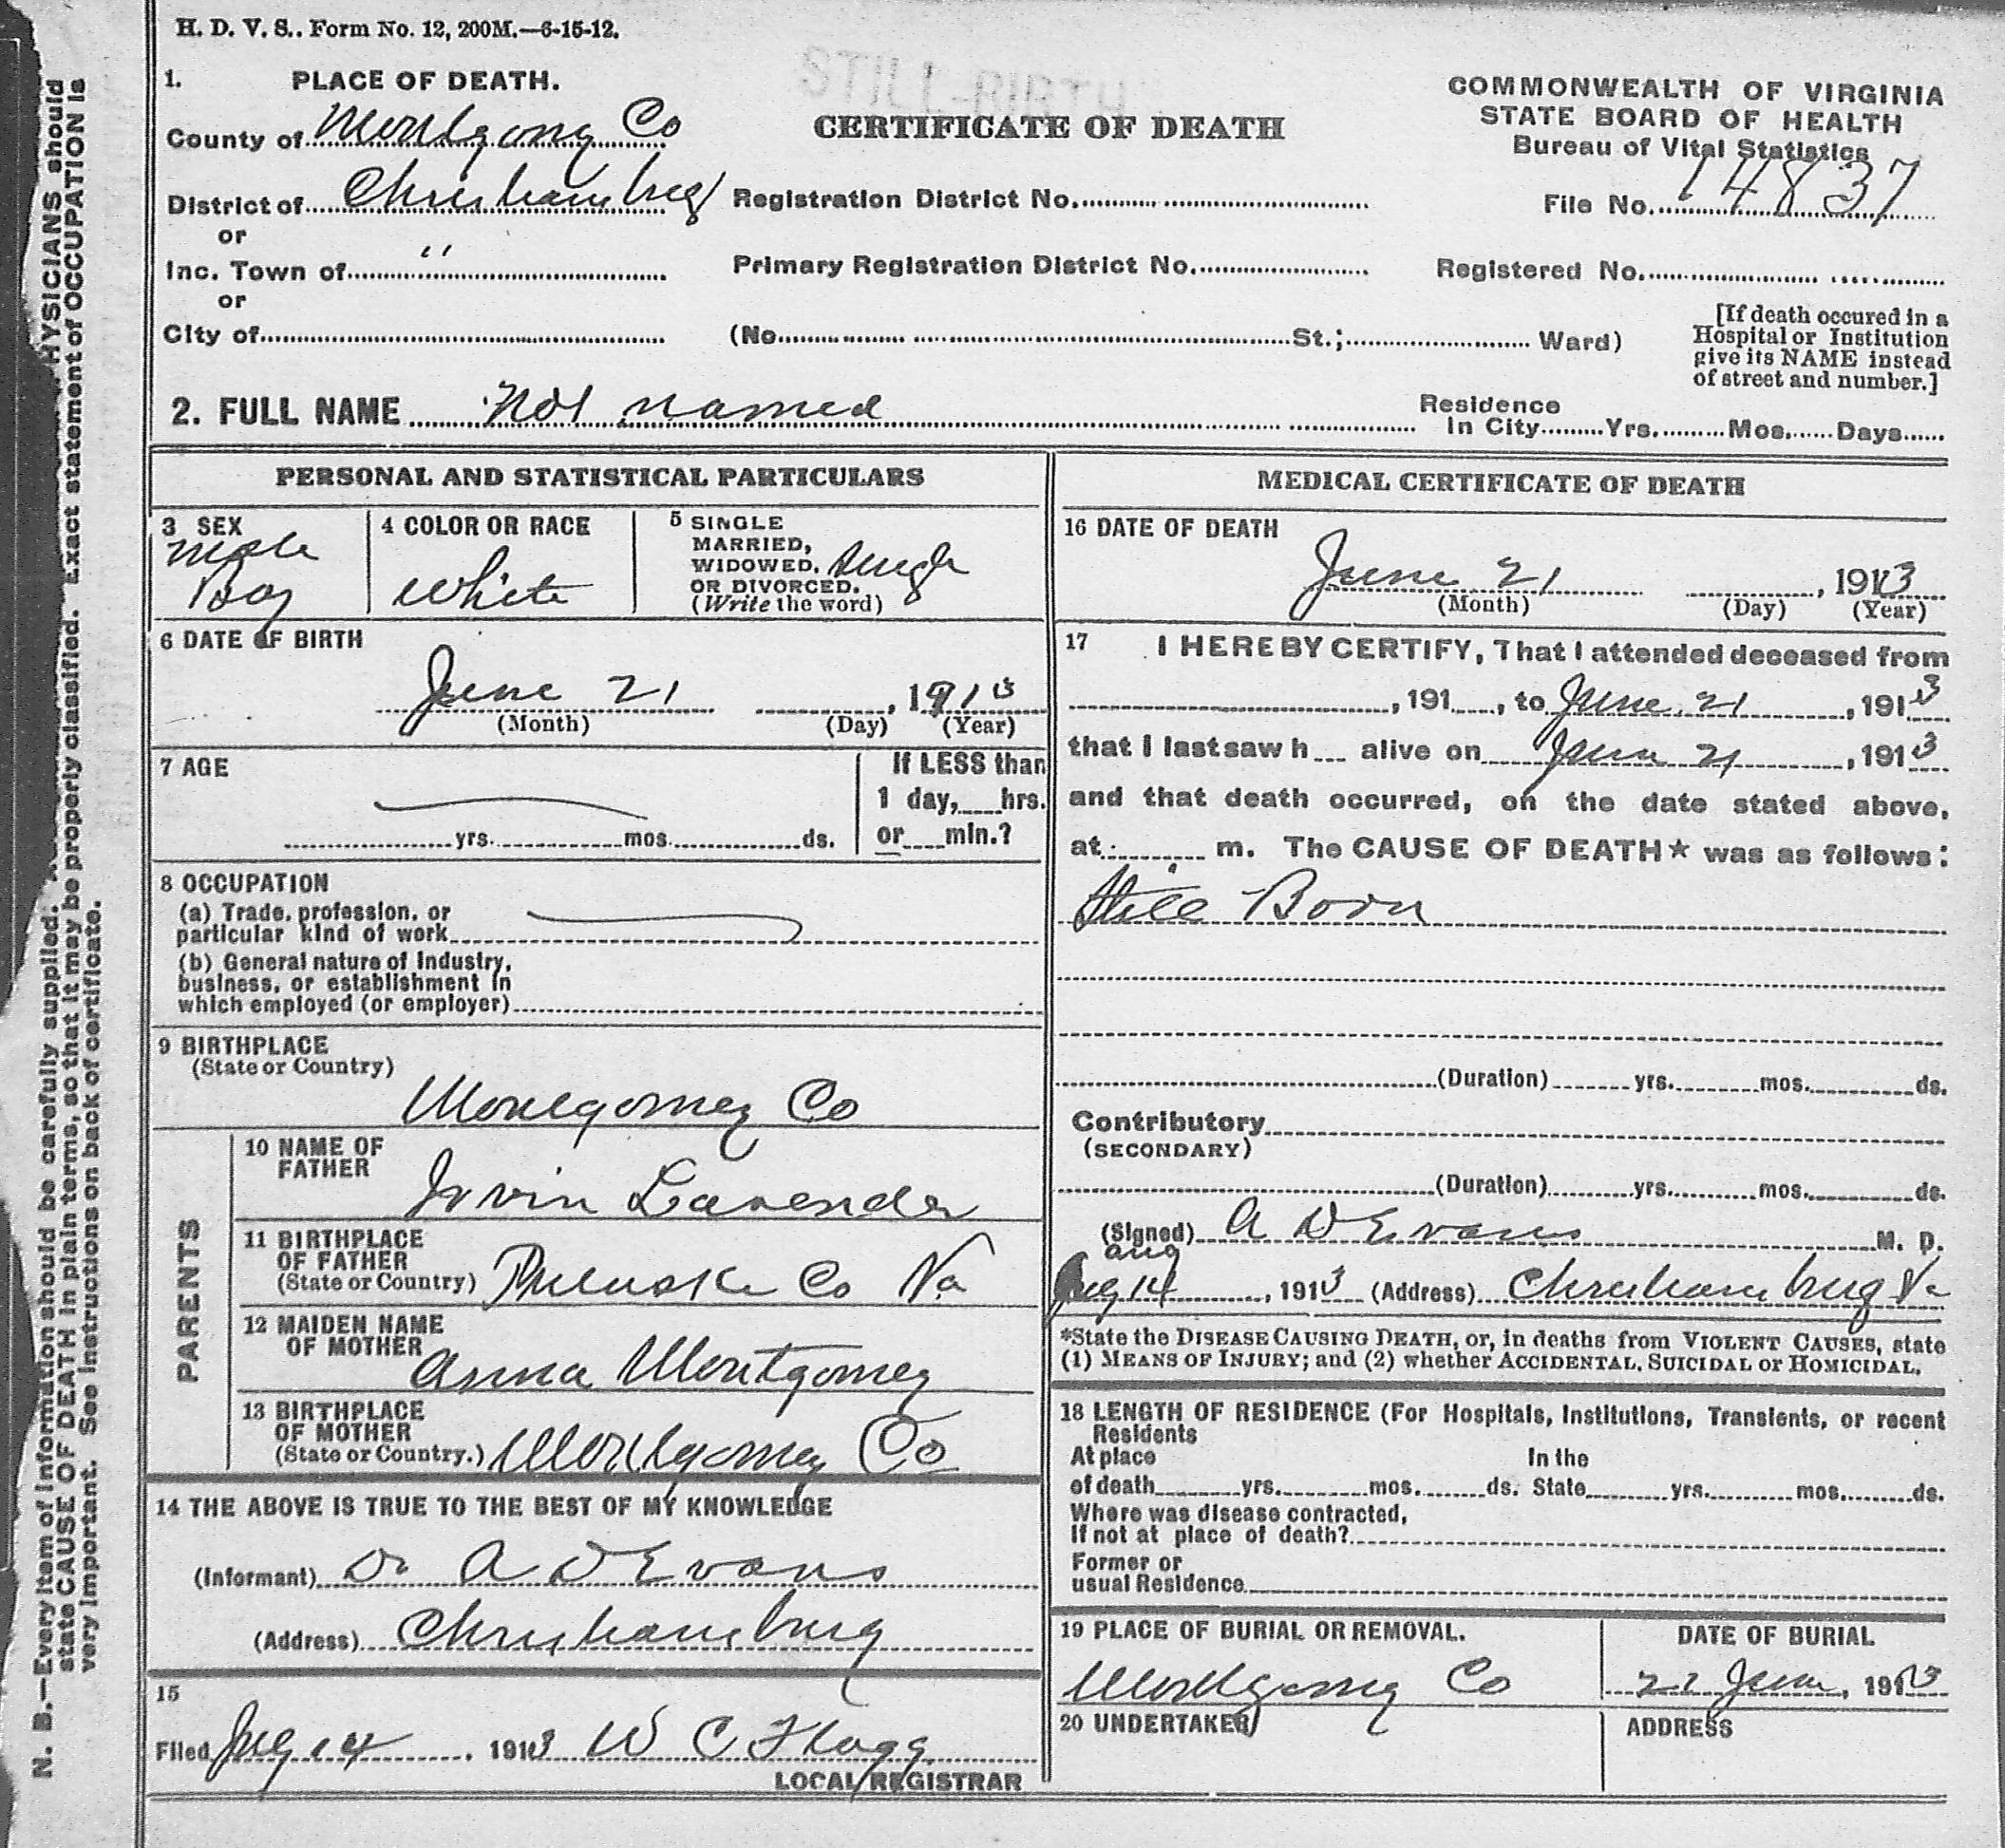 H. D. V. S.. Form No. 12, 200M.—6-15-12.
STILL-BIRTH
1. PLACE OF DEATH.
County of Montgomy Co
District of Christiansburg
or
Inc. Town of "
or
City of
CERTIFICATE OF DEATH
Registration District No.
Primary Registration District No.
(No. St.; Ward)
COMMONWEALTH OF VIRGINIA
STATE BOARD OF HEALTH
Bureau of Vital Statistics
File No. 14837
Registered No.
[If death occured in a
Hospital or Institution
give its NAME instead
of street and number.]
2. FULL NAME Not named
Residence
In City Yrs. Mos. Days
PERSONAL AND STATISTICAL PARTICULARS
3 SEX
Male
Boy
4 COLOR OR RACE
White
5 SINGLE
MARRIED,
WIDOWED,
OR DIVORCED.
(Write the word)
Single
6 DATE OF BIRTH
June 21, 1913
(Month) (Day) (Year)
7 AGE
yrs. mos. ds.
If LESS than
1 day, hrs.
or min.?
8 OCCUPATION
(a) Trade, profession, or
particular kind of work
(b) General nature of Industry,
business, or establishment in
which employed (or employer)
9 BIRTHPLACE
(State or Country)
Montgomery Co
PARENTS
10 NAME OF
FATHER
Irvin Lavender
11 BIRTHPLACE
OF FATHER
(State or Country) Puluski Co Va
12 MAIDEN NAME
OF MOTHER
Anna Montgomery
13 BIRTHPLACE
OF MOTHER
(State or Country.) Montgomery Co
14 THE ABOVE IS TRUE TO THE BEST OF MY KNOWLEDGE
(Informant) Dr A D Evans
(Address) Christiansburg
15
Filed 14, 1913 W C Flagg
LOCAL REGISTRAR
MEDICAL CERTIFICATE OF DEATH
16 DATE OF DEATH
June 21, 1913
(Month) (Day) (Year)
17 I HEREBY CERTIFY, That I attended deceased from
, 191 , to June 21, 1913
that I last saw h alive on June 21, 1913
and that death occurred, on the date stated above,
at m. The CAUSE OF DEATH* was as follows:
Still Born
(Duration) yrs. mos. ds.
Contributory
(SECONDARY)
(Duration) yrs. mos. ds.
(Signed) A D Evans M. D.
aug
Aug 14, 1913 (Address) Christiansburg Va
*State the DISEASE CAUSING DEATH, or, in deaths from VIOLENT CAUSES, state
(1) MEANS OF INJURY; and (2) whether ACCIDENTAL, SUICIDAL or HOMICIDAL.
18 LENGTH OF RESIDENCE (For Hospitals, Institutions, Transients, or recent
Residents
At place In the
of death yrs. mos. ds. State yrs. mos. ds.
Where was disease contracted,
If not at place of death?
Former or
usual Residence
19 PLACE OF BURIAL OR REMOVAL.
Montgomy Co
DATE OF BURIAL
21 June, 1913
20 UNDERTAKER
ADDRESS
N. B.—Every item of information should be carefully supplied. PHYSICIANS should
state CAUSE OF DEATH in plain terms, so that it may be properly classified. Exact statement of OCCUPATION is
very important. See instructions on back of certificate.